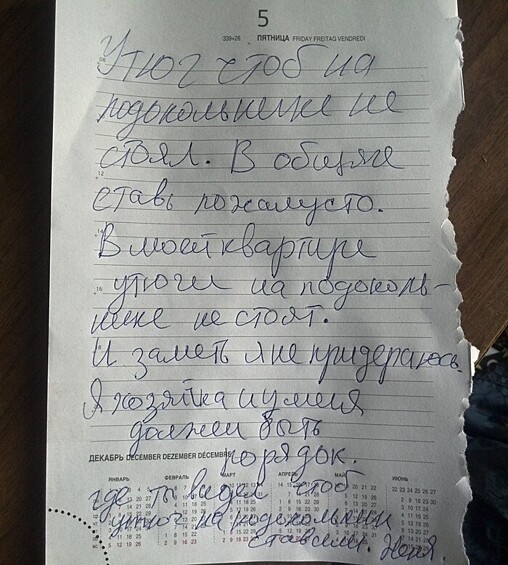 5
339-26 ПЯТНИЦА FRIDAY FREITAG VENDREDI
Утюг чтоб на
подокольнике не
стоял. В общаге
ставь пожалусто.
В моей квартире
утюги на подоколь-
нике не стоят.
И заметь я не придераюсь.
Я хозяйка и у меня
должен быть
порядок.
ДЕКАБРЬ DECEMBER DEZEMBER DÉCEMBRE
ЯНВАРЬ ФЕВРАЛЬ МАРТ АПРЕЛЬ МАЙ ИЮНЬ
где ты видел чтоб
утюг на подокольник
ставили.